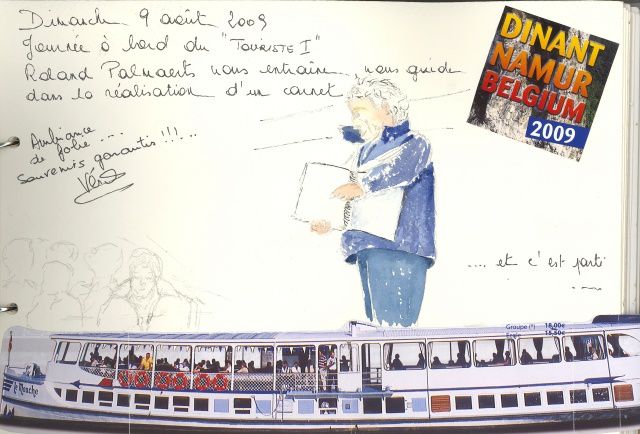 Dimanche 9 août 2009
Journée à bord du "TOURISTE I"
Roland Palmaerts nous entraine, nous guide
dans la réalisation d'un carnet
Ambiance
de folie ....
Souvenirs garantis !!! ...
DINANT
NAMUR
BELGIUM
2009
.... et c'est parti
....
Groupe (*) 18,00€
15,50€
La Mouche